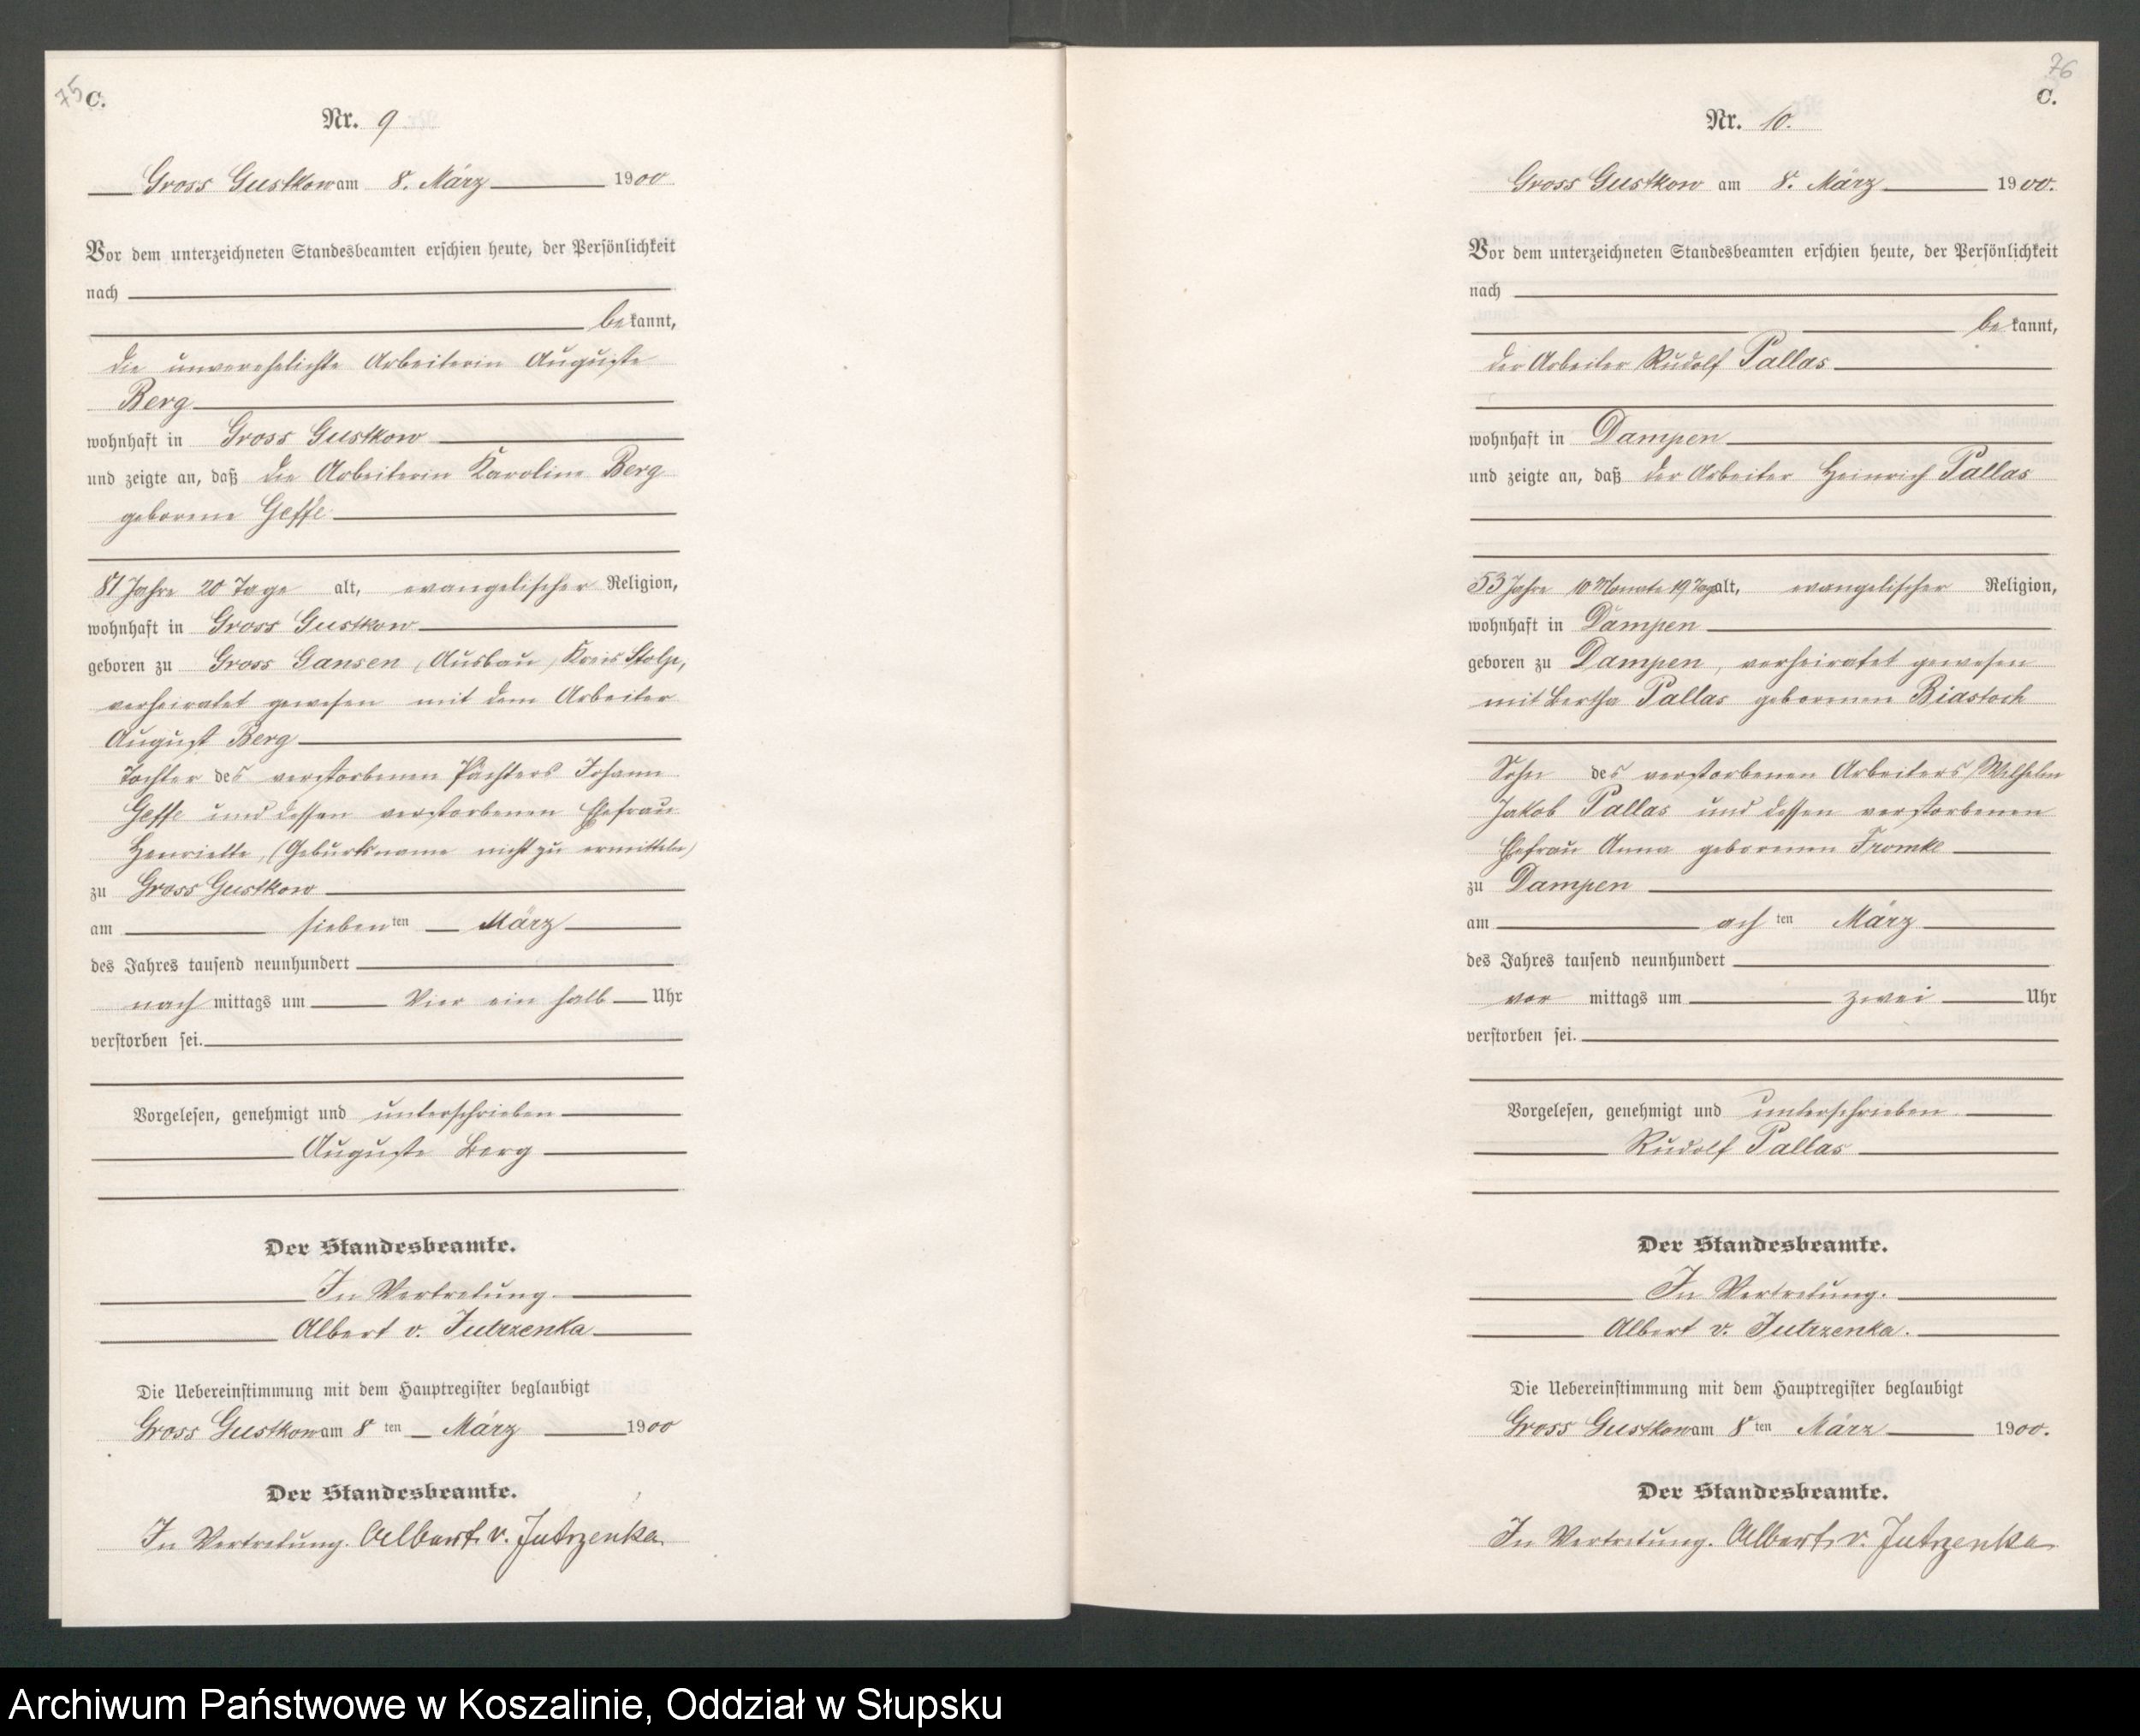 75 C.
Nr. 9
Gross Gustkow am 8. März 1900
Vor dem unterzeichneten Standesbeamten erschien heute, der Persönlichkeit
nach
bekannt,
die unverehelichte Arbeiterin Auguste
Berg
wohnhaft in Gross Gustkow
und zeigte an, daß die Arbeiterin Karoline Berg
geborene Geffe
81 Jahre 20 Tage alt, evangelischer Religion,
wohnhaft in Gross Gustkow
geboren zu Gross Gansen, Ausbau, Kreis Stolp,
verheiratet gewesen mit dem Arbeiter
August Berg
Tochter des verstorbenen Pächters Johann
Geffe und dessen verstorbenen Ehefrau
Henriette, (Geburtsname nicht zu ermitteln)
zu Gross Gustkow
am siebenten März
des Jahres tausend neunhundert
nach mittags um Vier ein halb Uhr
verstorben sei.
Vorgelesen, genehmigt und unterschrieben
Auguste Berg
Der Standesbeamte.
In Vertretung.
Albert v. Jutrzenka
Die Uebereinstimmung mit dem Hauptregister beglaubigt
Gross Gustkow am 8ten März 1900
Der Standesbeamte.
In Vertretung. Albert v. Jutrzenka
76
C.
Nr. 10.
Gross Gustkow am 8. März 1900.
Vor dem unterzeichneten Standesbeamten erschien heute, der Persönlichkeit
nach
bekannt,
der Arbeiter Rudolf Pallas
wohnhaft in Dampen
und zeigte an, daß der Arbeiter Heinrich Pallas
53 Jahre 10 Monate 19 Tage alt, evangelischer Religion,
wohnhaft in Dampen
geboren zu Dampen, verheiratet gewesen
mit Bertha Pallas geborenen Biastoch
Sohn des verstorbenen Arbeiters Wilhelm
Jakob Pallas und dessen verstorbenen
Ehefrau Anna geborenen Fromke
zu Dampen
am achten März
des Jahres tausend neunhundert
vor mittags um zwei Uhr
verstorben sei.
Vorgelesen, genehmigt und unterschrieben
Rudolf Pallas
Der Standesbeamte.
In Vertretung.
Albert v. Jutrzenka.
Die Uebereinstimmung mit dem Hauptregister beglaubigt
Gross Gustkow am 8ten März 1900.
Der Standesbeamte.
In Vertretung. Albert v. Jutrzenka
Archiwum Państwowe w Koszalinie, Oddział w Słupsku